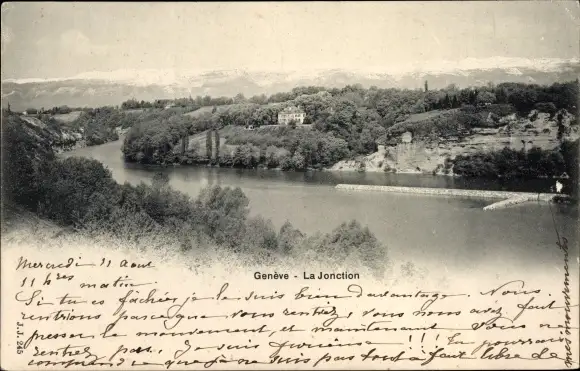 Genève - La Jonction
Mercredi 11 août
11 hrs matin
Si tu es fâchée, je le suis bien davantage. Nous
rentrions parce que vous rentriez, nous avons
presser le mouvement, et maintenant vous ne
rentrez pas. Je suis furieuse !!! Tu pourrais
comprendre que je ne suis pas tout à fait libre de
mes mouvements
J.J. 245